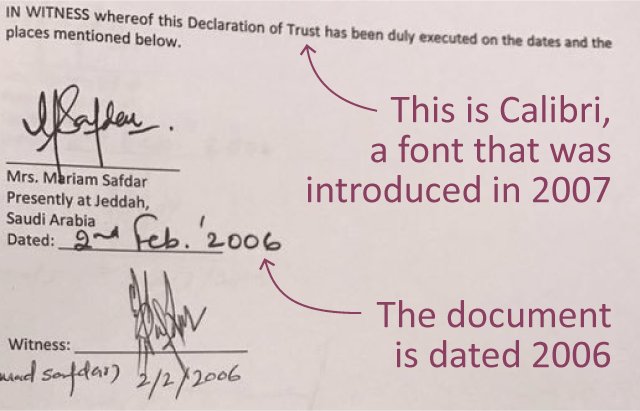 IN WITNESS whereof this Declaration of Trust has been duly executed on the dates and the
places mentioned below.
This is Calibri,
a font that was
introduced in 2007
Mrs. Mariam Safdar
Presently at Jeddah,
Saudi Arabia
Dated: 2nd Feb. '2006
The document
is dated 2006
Witness:
2/2/2006